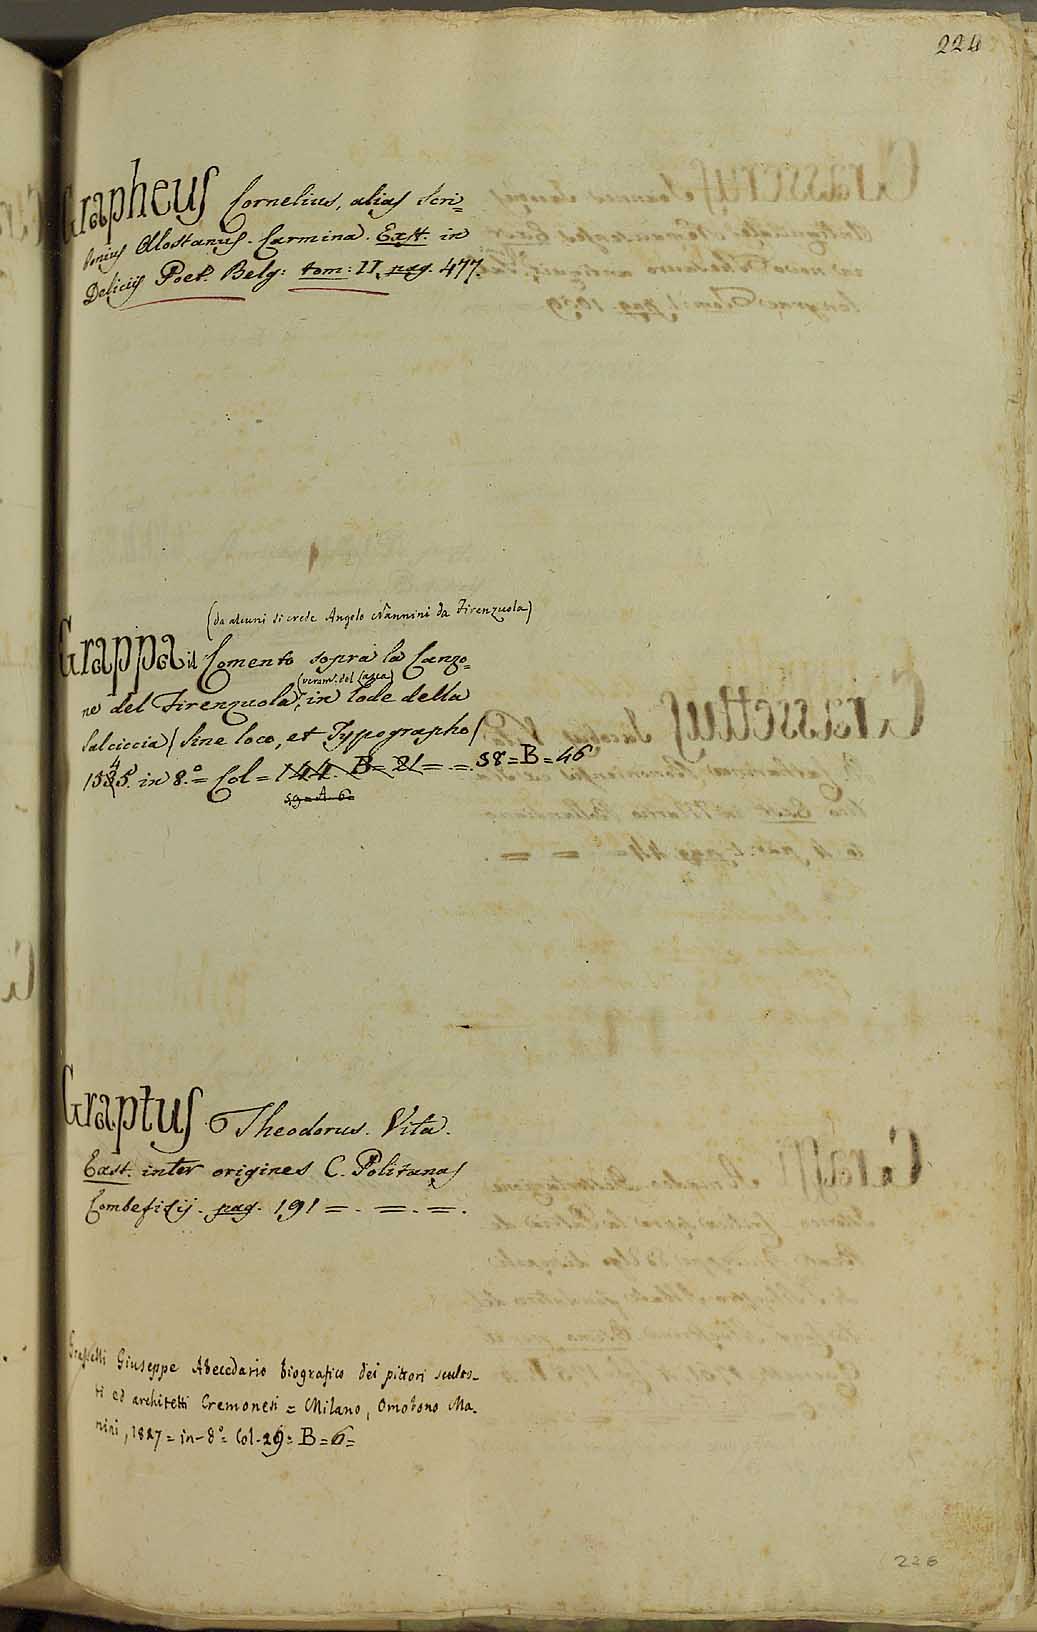 224
Grapheus Cornelius, alias Scri=
bonius Alostanus. Carmina. Exst. in
Deliciis Poet. Belg: tom: II. pag. 477.
(da alcuni si crede Angelo Nannini da Firenzuola)
Grappa il Comento sopra la Canzo=
(veram.e del Lasca)
ne del Firenzuola, in lode della
salciccia / sine loco, et Typographo /
1545. in 8.o = Col = 144. B = 21 = . = . 58 = B = 46
59 = A = 6 =
Graptus Theodorus. Vita.
Exst. inter origines C. Politanas
Combefisij. pag. 191 = . = . = .
Grasselli Giuseppe Abecedario biografico dei pittori scultos-
ri ed architetti Cremonesi = Milano, Omobono Ma-
nini, 1827 = in-8o = Col. 29 = B = 6 =
226